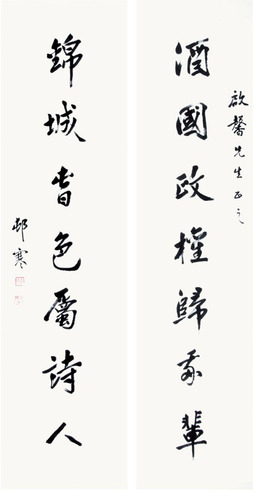 啟馨先生正之
酒國政權歸我輩
錦城旾色屬詩人
邨寒